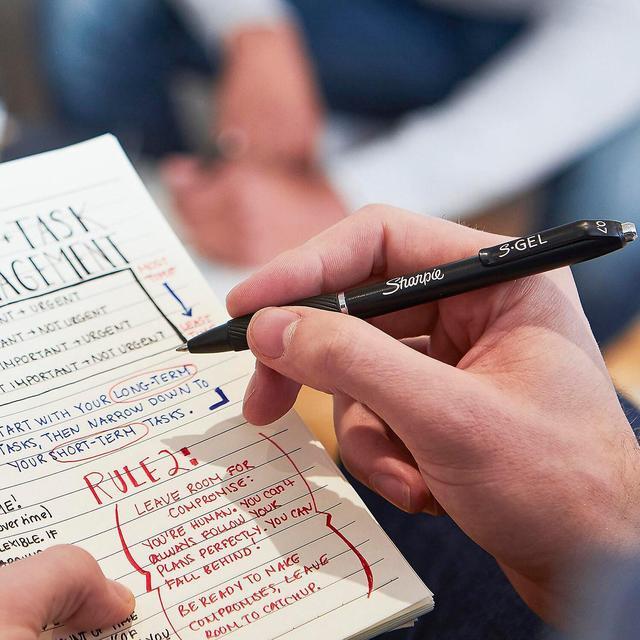 + TASK
AGEMENT
ANT + URGENT
ANT + NOT URGENT
IMPORTANT + URGENT
T IMPORTANT + NOT URGENT
MOST
LEAST
TART WITH YOUR LONG-TERM
TASKS, THEN NARROW DOWN TO
YOUR SHORT-TERM TASKS.
RULE 2:
LEAVE ROOM FOR
COMPROMISE:
YOU'RE HUMAN. YOU CAN'T
ALWAYS FOLLOW YOUR
PLANS PERFECTLY. YOU CAN
FALL BEHIND!
BE READY TO MAKE
COMPROMISES, LEAVE
ROOM TO CATCHUP.
ME!
over time)
LEXIBLE. IF
YOU
Sharpie
S·GEL
0.7